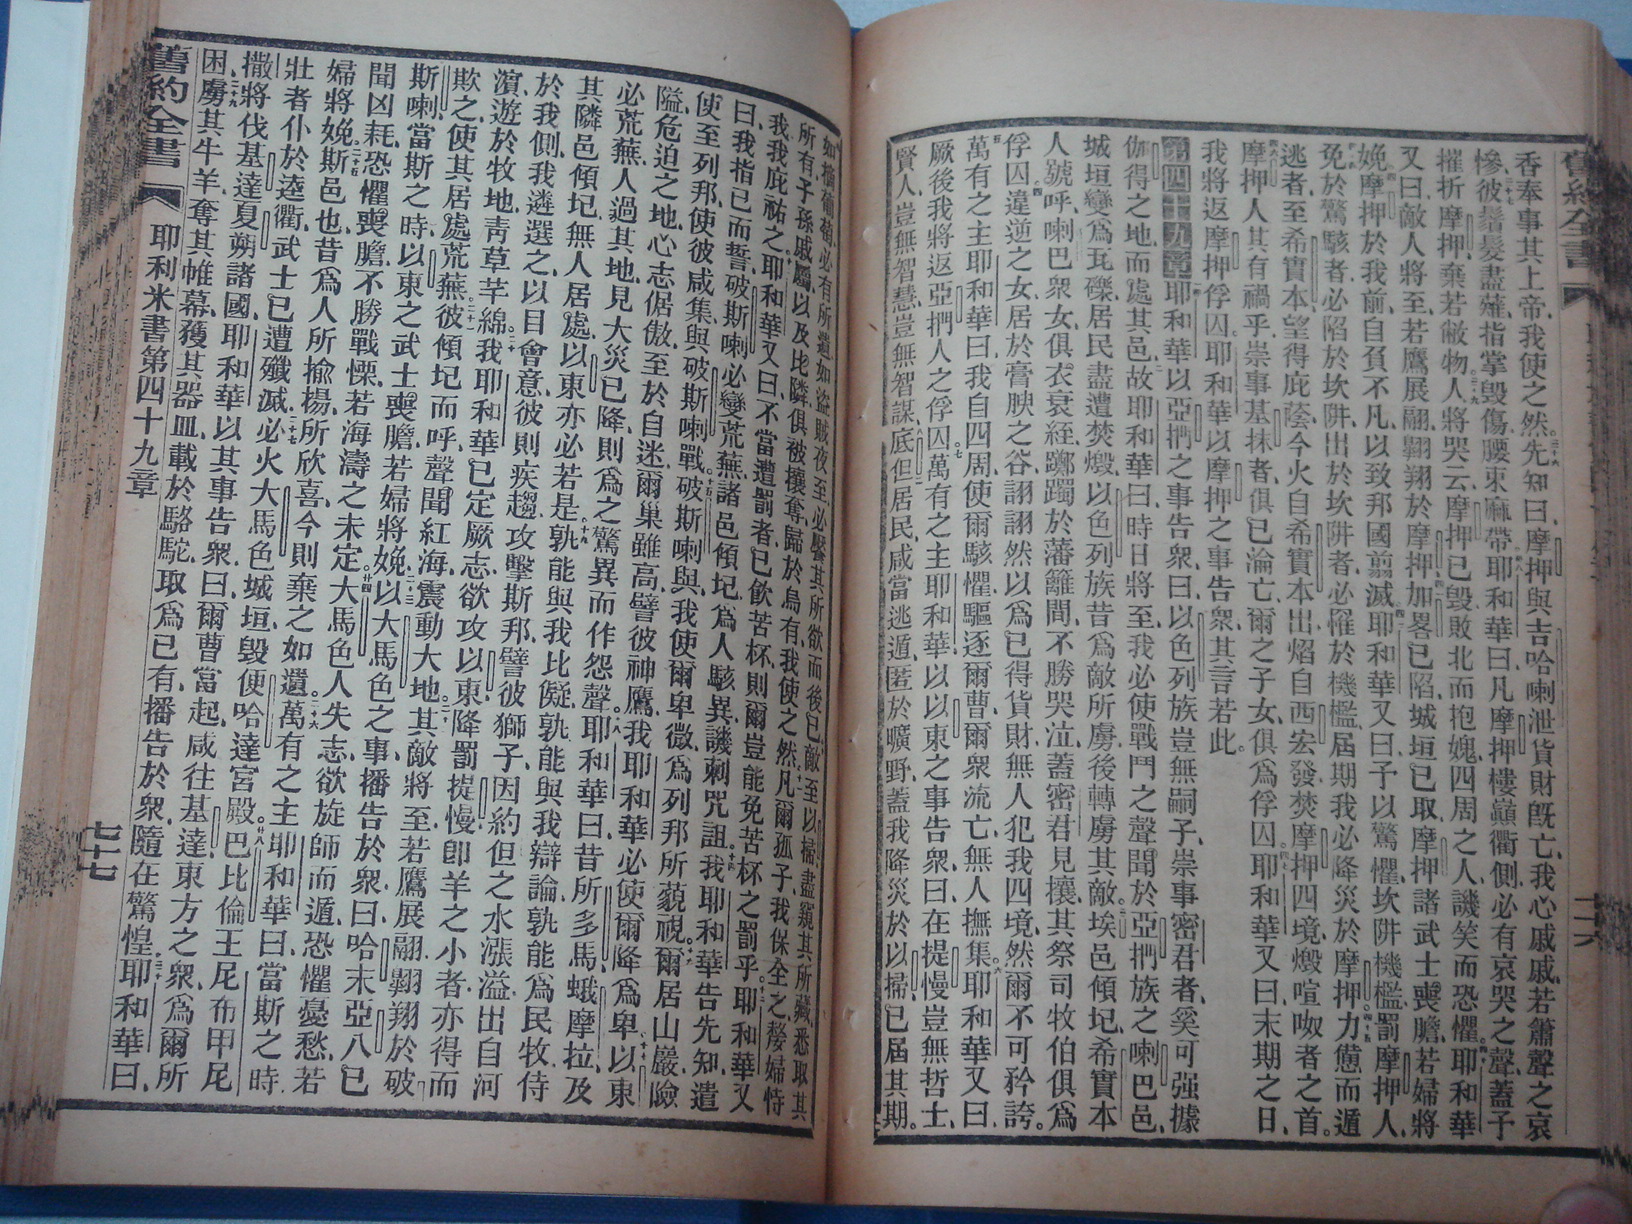 香奉事其上帝我使之然先知曰摩押與吉哈喇泄貨財既亡我心戚戚若簫聲之哀
慘彼鬚髮盡薙指掌毀傷腰束麻帶耶和華曰凡摩押樓巔衢側必有哀哭之聲蓋予
摧折摩押棄若敝物人將哭云摩押已毀敗北而抱媿四周之人譏笑而恐懼耶和華
又曰敵人將至若鷹展翮翱翔於摩押加畧已陷城垣已取摩押諸武士喪膽若婦將
娩摩押於我前自負不凡以致邦國翦滅耶和華又曰予以驚懼坎阱機檻罰摩押人
免於驚駭者必陷於坎阱出於坎阱者必罹於機檻屆期我必降災於摩押力憊而遁
逃者至希實本望得庇蔭今火自希實本出焰自西宏發焚摩押四境燬喧呶者之首
摩押人其有禍乎崇事基抹者俱已淪亡爾之子女俱為俘囚耶和華又曰末期之日
我將返摩押俘囚耶和華以摩押之事告衆其言若此
第四十九章耶和華以亞捫之事告衆曰以色列族豈無嗣子崇事密君者奚可强據
伽得之地而處其邑故耶和華曰時日將至我必使戰鬥之聲聞於亞捫族之喇巴邑
城垣變為瓦礫居民盡遭焚燬以色列族昔為敵所虜後轉虜其敵埃邑傾圮希實本
人號呼喇巴衆女俱衣衰絰躑躅於藩籬間不勝哭泣蓋密君見攘其祭司牧伯俱為
俘囚違逆之女居於膏腴之谷詡詡然以為已得貨財無人犯我四境然爾不可矜誇
萬有之主耶和華曰我自四周使爾駭懼驅逐爾曹爾衆流亡無人撫集耶和華又曰
厥後我將返亞捫人之俘囚萬有之主耶和華以以東之事告衆曰在提慢豈無哲士
賢人豈無智慧豈無智謀底但居民咸當逃遁匿於曠野蓋我降災於以掃已屆其期
如摘葡萄必有所遺如盜賊夜至必饜其所欲而後已敵至以掃盡窺其所藏悉取其
所有子孫戚屬以及比隣俱被攘奪歸於烏有我使之然凡爾孤子我保全之嫠婦恃
我我庇祐之耶和華又曰不當遭罰者已飲苦杯則爾豈能免苦杯之罰乎耶和華又
曰我指已而誓破斯喇必變荒蕪諸邑傾圮為人駭異譏刺咒詛我耶和華告先知遣
使至列邦使彼咸集與破斯喇戰破斯喇與我使爾卑微為列邦所藐視爾居山巖險
隘危迫之地心志倨傲至於自迷爾巢雖高譬彼神鷹我耶和華必使爾降為卑以東
必荒蕪人過其地見大災已降則為之驚異而作怨聲耶和華曰昔所多馬蛾摩拉及
其隣邑傾圮無人居處以東亦必若是孰能與我比儗孰能與我辯論孰能為民牧侍
於我側我遴選之以目會意彼則疾趨攻擊斯邦譬彼獅子因約但之水漲溢出自河
濱遊於牧地靑草芊綿我耶和華已定厥志欲攻以東降罰提慢卽羊之小者亦得而
欺之使其居處荒蕪彼傾圮而呼聲聞紅海震動大地其敵將至若鷹展翮翱翔於破
斯喇當斯之時以東之武士喪膽若婦將娩以大馬色之事播告於衆曰哈末亞八已
聞凶耗恐懼喪膽不勝戰慄若海濤之未定大馬色人失志欲旋師而遁恐懼憂愁若
婦將娩斯邑也昔為人所揄揚所欣喜今則棄之如遺萬有之主耶和華曰當斯之時
壯者仆於逵衢武士已遭殲滅必火大馬色城垣毀便哈達宮殿巴比倫王尼布甲尼
撒將伐基達夏朔諸國耶和華以其事告衆曰爾曹當起咸往基達東方之衆為爾所
困虜其牛羊奪其帷幕獲其器皿載於駱駝取為已有播告於衆隨在驚惶耶和華曰
舊約全書 耶利米書第四十九章 七十七